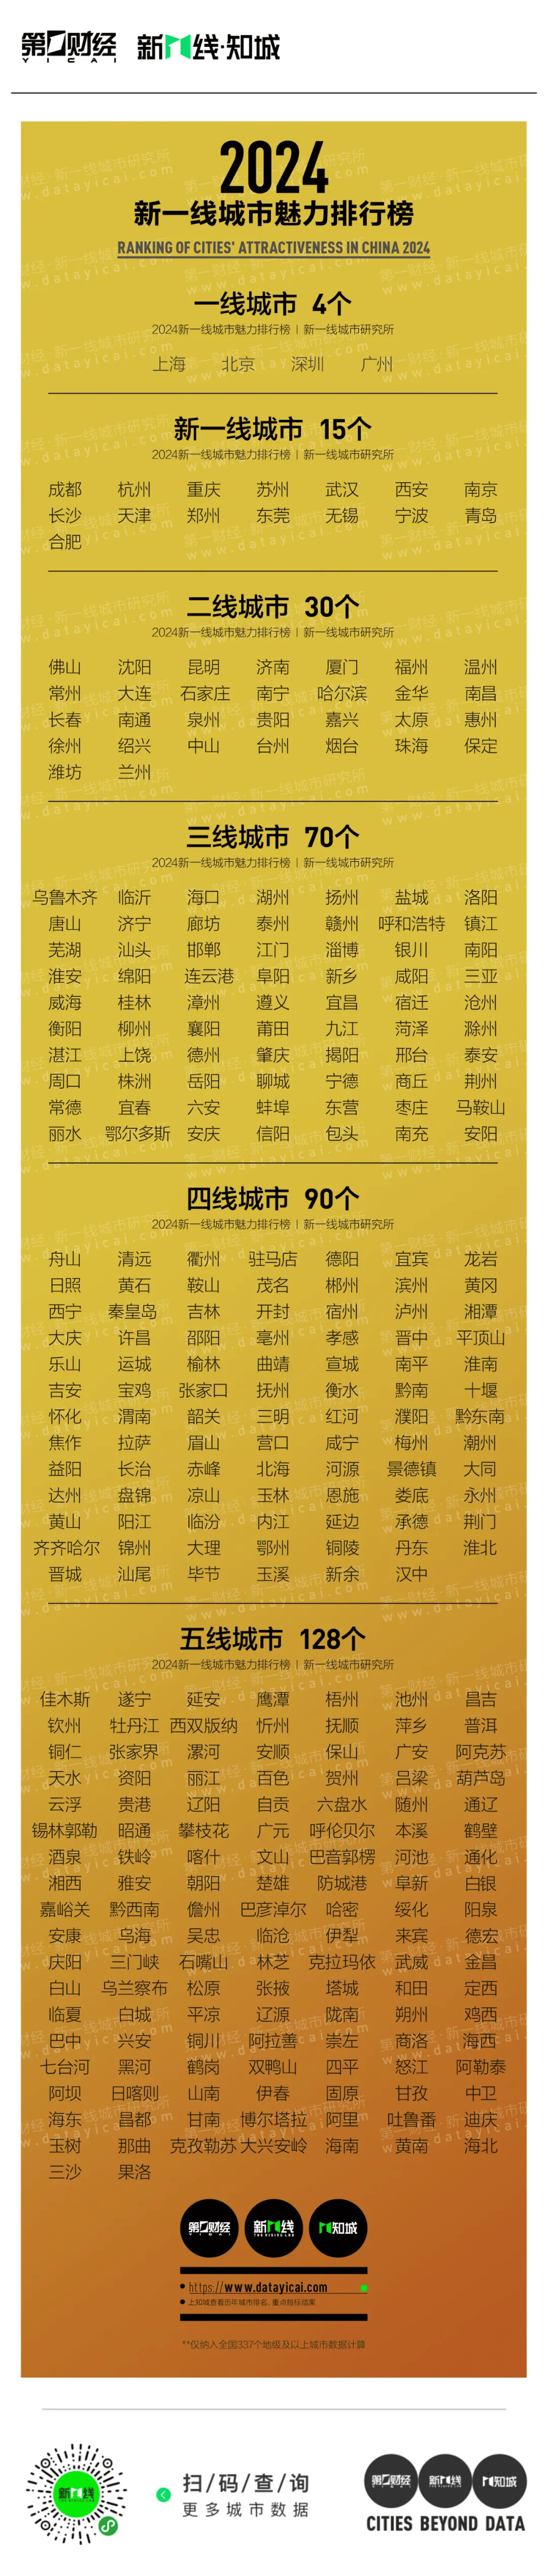 第一财经 新一线·知城
YICAI
2024
新一线城市魅力排行榜
RANKING OF CITIES' ATTRACTIVENESS IN CHINA 2024
一线城市 4个
2024新一线城市魅力排行榜 | 新一线城市研究所
上海 北京 深圳 广州
新一线城市 15个
2024新一线城市魅力排行榜 | 新一线城市研究所
成都 杭州 重庆 苏州 武汉 西安 南京
长沙 天津 郑州 东莞 无锡 宁波 青岛
合肥
二线城市 30个
2024新一线城市魅力排行榜 | 新一线城市研究所
佛山 沈阳 昆明 济南 厦门 福州 温州
常州 大连 石家庄 南宁 哈尔滨 金华 南昌
长春 南通 泉州 贵阳 嘉兴 太原 惠州
徐州 绍兴 中山 台州 烟台 珠海 保定
潍坊 兰州
三线城市 70个
2024新一线城市魅力排行榜 | 新一线城市研究所
乌鲁木齐 临沂 海口 湖州 扬州 盐城 洛阳
唐山 济宁 廊坊 泰州 赣州 呼和浩特 镇江
芜湖 汕头 邯郸 江门 淄博 银川 南阳
淮安 绵阳 连云港 阜阳 新乡 咸阳 三亚
威海 桂林 漳州 遵义 宜昌 宿迁 沧州
衡阳 柳州 襄阳 莆田 九江 菏泽 滁州
湛江 上饶 德州 肇庆 揭阳 邢台 泰安
周口 株洲 岳阳 聊城 宁德 商丘 荆州
常德 宜春 六安 蚌埠 东营 枣庄 马鞍山
丽水 鄂尔多斯 安庆 信阳 包头 南充 安阳
四线城市 90个
2024新一线城市魅力排行榜 | 新一线城市研究所
舟山 清远 衢州 驻马店 德阳 宜宾 龙岩
日照 黄石 鞍山 茂名 郴州 滨州 黄冈
西宁 秦皇岛 吉林 开封 宿州 泸州 湘潭
大庆 许昌 邵阳 亳州 孝感 晋中 平顶山
乐山 运城 榆林 曲靖 宣城 南平 淮南
吉安 宝鸡 张家口 抚州 衡水 黔南 十堰
怀化 渭南 韶关 三明 红河 濮阳 黔东南
焦作 拉萨 眉山 营口 咸宁 梅州 潮州
益阳 长治 赤峰 北海 河源 景德镇 大同
达州 盘锦 凉山 玉林 恩施 娄底 永州
黄山 阳江 临汾 内江 延边 承德 荆门
齐齐哈尔 锦州 大理 鄂州 铜陵 丹东 淮北
晋城 汕尾 毕节 玉溪 新余 汉中
五线城市 128个
2024新一线城市魅力排行榜 | 新一线城市研究所
佳木斯 遂宁 延安 鹰潭 梧州 池州 昌吉
钦州 牡丹江 西双版纳 忻州 抚顺 萍乡 普洱
铜仁 张家界 漯河 安顺 保山 广安 阿克苏
天水 资阳 丽江 百色 贺州 吕梁 葫芦岛
云浮 贵港 辽阳 自贡 六盘水 随州 通辽
锡林郭勒 昭通 攀枝花 广元 呼伦贝尔 本溪 鹤壁
酒泉 铁岭 喀什 文山 巴音郭楞 河池 通化
湘西 雅安 朝阳 楚雄 防城港 阜新 白银
嘉峪关 黔西南 儋州 巴彦淖尔 哈密 绥化 阳泉
安康 乌海 吴忠 临沧 伊犁 来宾 德宏
庆阳 三门峡 石嘴山 林芝 克拉玛依 武威 金昌
白山 乌兰察布 松原 张掖 塔城 和田 定西
临夏 白城 平凉 辽源 陇南 朔州 鸡西
巴中 兴安 铜川 阿拉善 崇左 商洛 海西
七台河 黑河 鹤岗 双鸭山 四平 怒江 阿勒泰
阿坝 日喀则 山南 伊春 固原 甘孜 中卫
海东 昌都 甘南 博尔塔拉 阿里 吐鲁番 迪庆
玉树 那曲 克孜勒苏 大兴安岭 海南 黄南 海北
三沙 果洛
第一财经 新一线 知城
https://www.datayicai.com
上知城查看历年城市排名、重点指标结果
**仅纳入全国337个地级及以上城市数据计算
新一线
扫/码/查/询
更多城市数据
第一财经 新一线 知城
CITIES BEYOND DATA